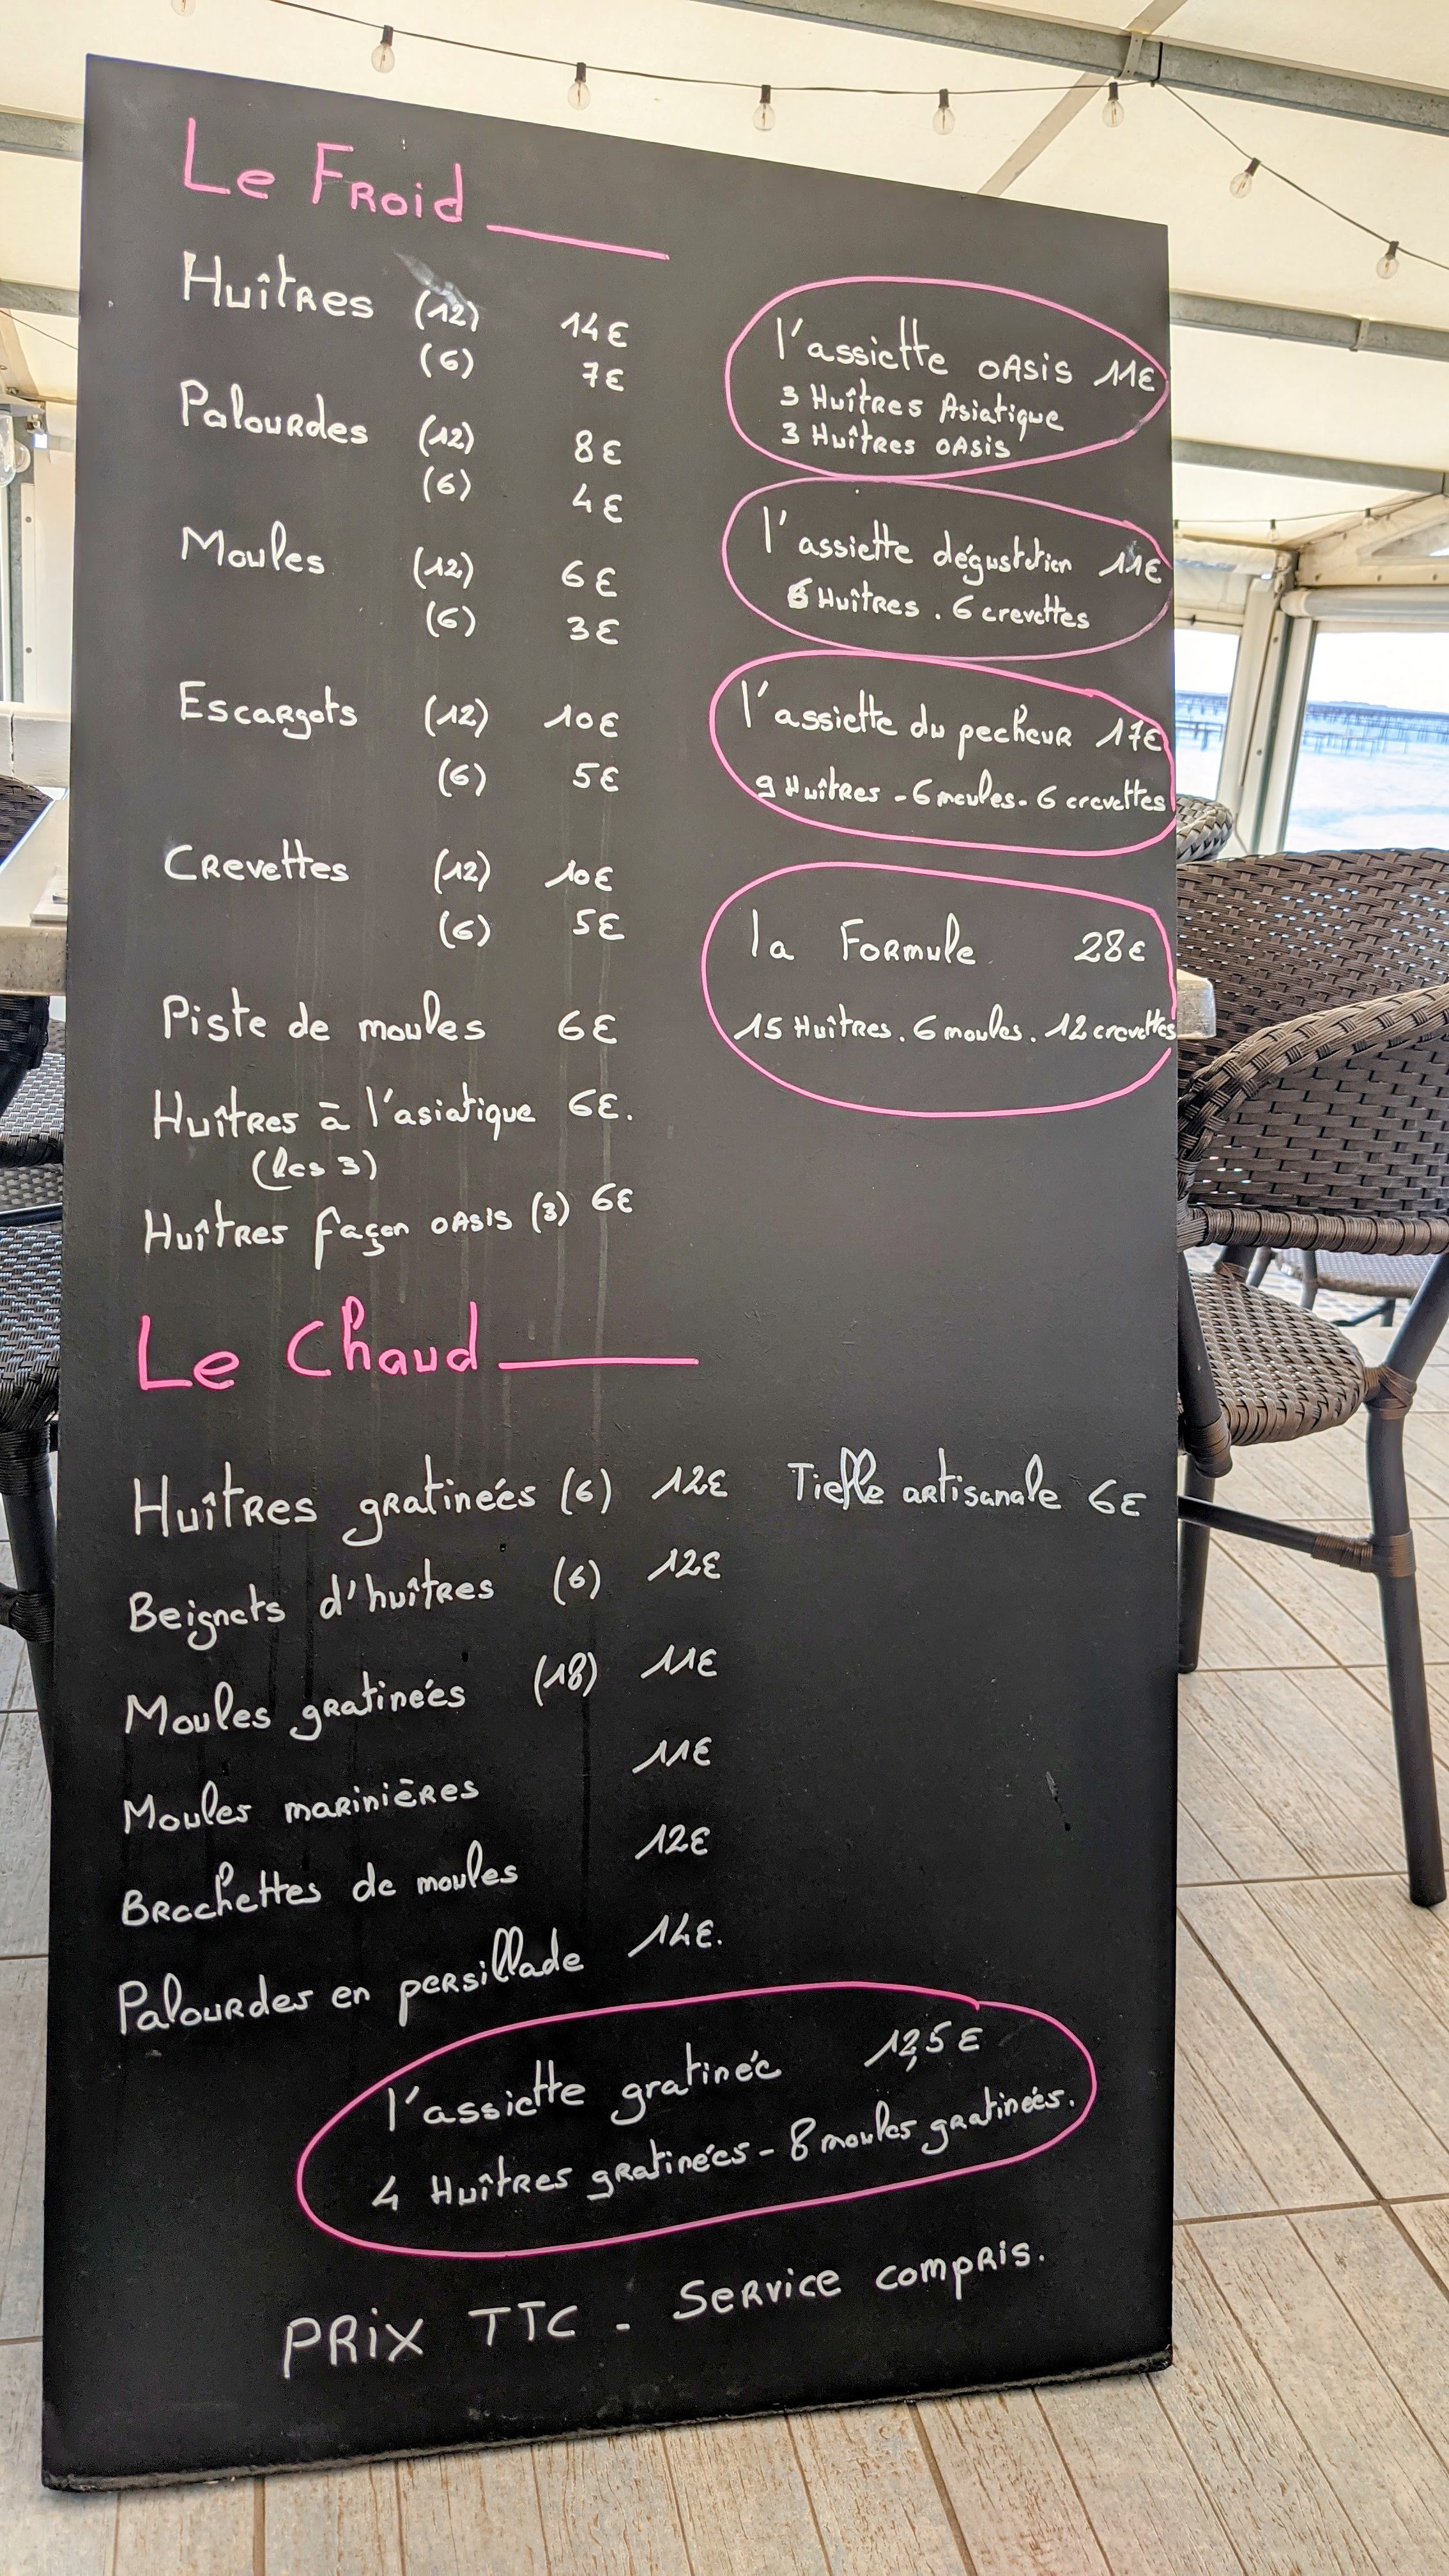 Le Froid
Huîtres (12) 14€
(6) 7€
Palourdes (12) 8€
(6) 4€
Moules (12) 6€
(6) 3€
Escargots (12) 10€
(6) 5€
Crevettes (12) 10€
(6) 5€
Piste de moules 6€
Huîtres à l'asiatique 6€.
(les 3)
Huîtres façon oasis (3) 6€
l'assiette oasis 11€
3 Huîtres Asiatique
3 Huîtres oasis
l'assiette dégustation 11€
6 Huîtres . 6 crevettes
l'assiette du pecheur 17€
9 Huîtres - 6 moules - 6 crevettes
la Formule 28€
15 Huîtres . 6 moules . 12 crevettes
Le Chaud
Huîtres gratinées (6) 12€
Beignets d'huîtres (6) 12€
Moules gratinées (18) 11€
Moules marinières 11€
Brochettes de moules 12€
Palourdes en persillade 14€.
Tielle artisanale 6€
l'assiette gratinée 12,5€
4 Huîtres gratinées - 8 moules gratinées.
PRIX TTC - Service compris.